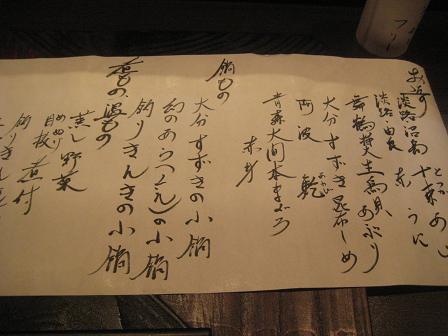 お造り
淡路沼島 あじ
淡路由良 赤うに
舞鶴 生鳥貝 あぶり
大分 すずき昆布じめ
阿波
青森大間本まぐろ
赤身
鍋もの
大分すずきの小鍋
幻のあら(くえ)の小鍋
釣りきんきの小鍋
煮もの、温もの
蒸し野菜
煮付
釣りきん